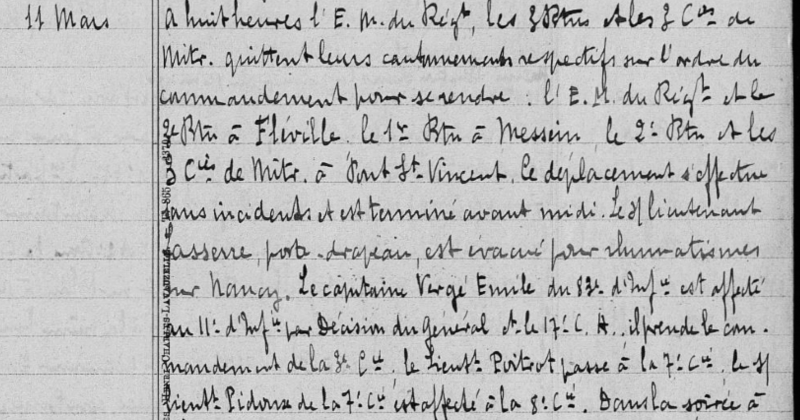 11 Mars
A huit heures l'E. M. du Régt, les 3 Btns et les 3 Cies de
Mitr. quittent leurs cantonnements respectifs sur l'ordre du
commandement pour se rendre : l'E. M. du Régt et le
3e Btn à Fléville, le 1er Btn à Messein, le 2e Btn et les
3 Cies de Mitr. à Pont St Vincent. Ce déplacement s'effectue
sans incidents et est terminé avant midi. Le S/lieutenant
asserre, porte-drapeau, est évacué pour rhumatismes
sur Nancy. Le capitaine Vergé Emile du 83e d'Infie est affecté
au 11e d'Infie par Décision du Général Ct le 17e C. A., il prend le com-
mandement de la 3e Cie, le Lieutt Poitrot passe à la 7e Cie, le S/
Lieutt Pidoux de la 7e Cie est affecté à la 8e Cie. Dans la soirée à